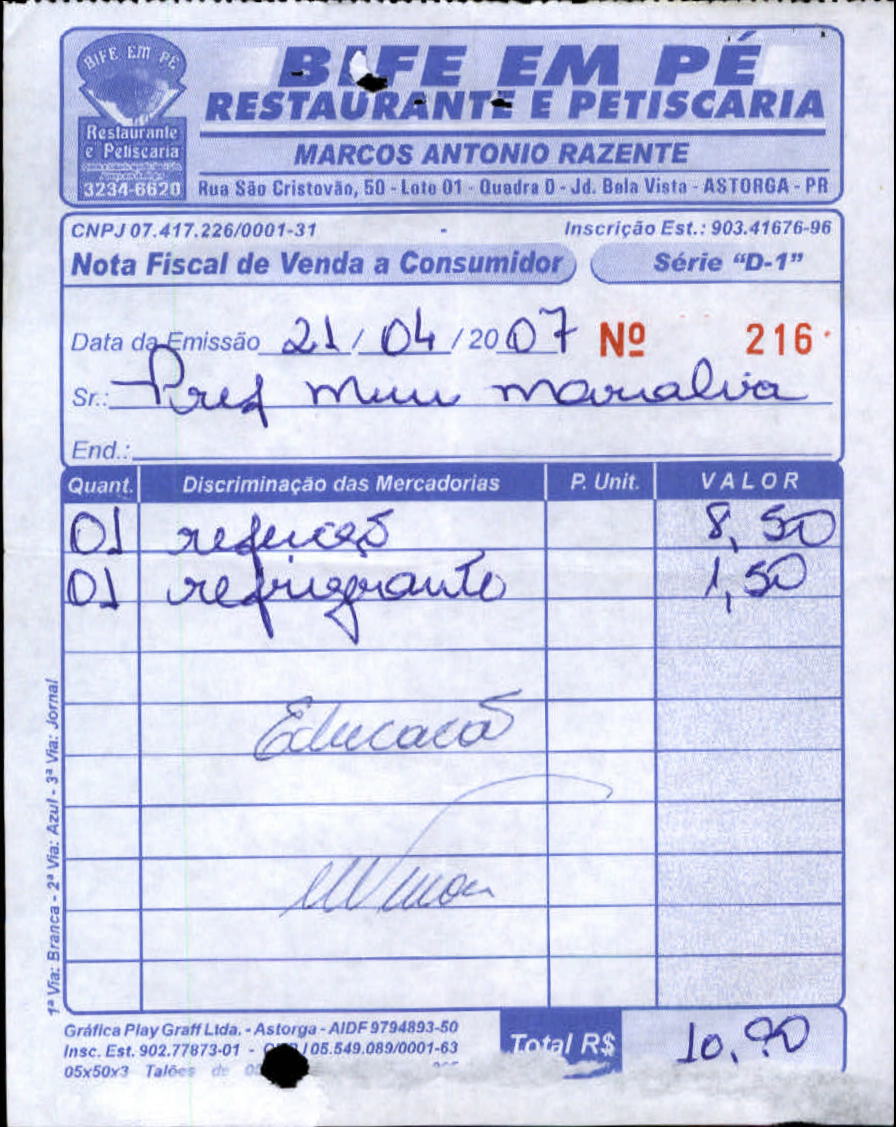 BIFE EM PÉ
Restaurante
e Petiscaria
3234-6620
BIFE EM PÉ
RESTAURANTE E PETISCARIA
MARCOS ANTONIO RAZENTE
Rua São Cristovão, 50 - Lote 01 - Quadra D - Jd. Bela Vista - ASTORGA - PR
CNPJ 07.417.226/0001-31 Inscrição Est.: 903.41676-96
Nota Fiscal de Venda a Consumidor Série “D-1”
Data da Emissão 21 / 04 / 20 07 Nº 216
Sr.: Pref Mun Marialva
End.:
Quant. Discriminação das Mercadorias P. Unit. VALOR
01 refeição 8,50
01 refrigerante 1,50
Educação
1ª Via: Branca - 2ª Via: Azul - 3ª Via: Jornal
Gráfica Play Graff Ltda. - Astorga - AIDF 9794893-50
Insc. Est. 902.77873-01 - 05.549.089/0001-63
05x50x3 Talões de
Total R$ 10,00